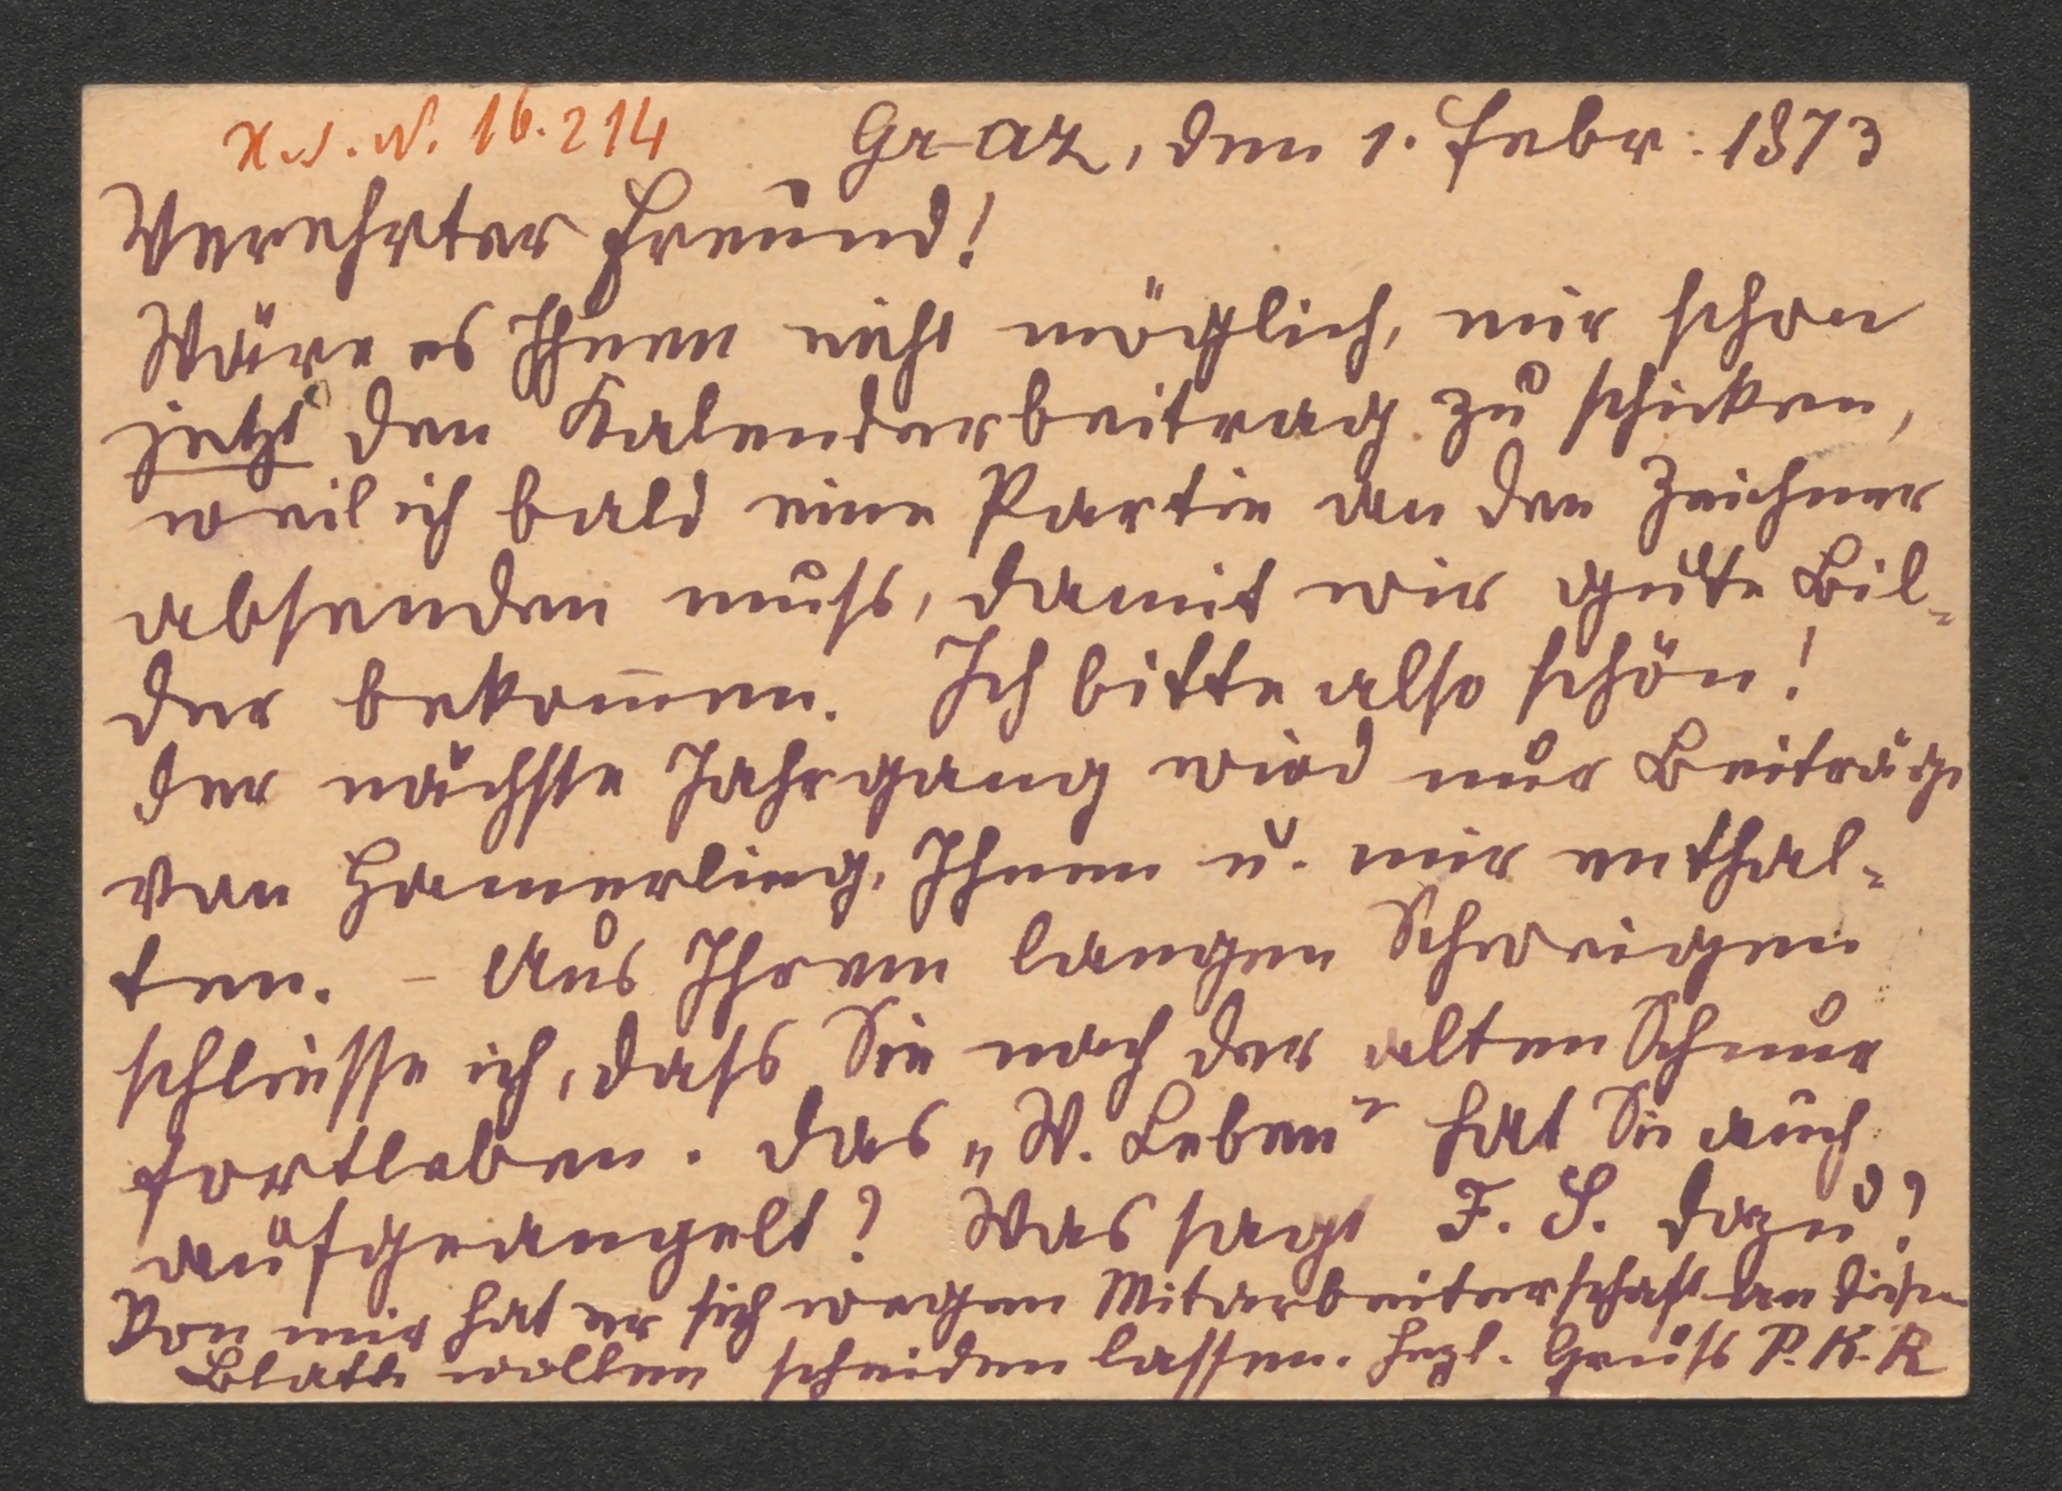 H.I.N. 16.214
Graz, den 1. Febr. 1873
Verehrter Freund!
Wäre es Ihnen nicht möglich, mir schon
jetzt den Kalenderbeitrag zu schicken,
weil ich bald eine Partie an den Zeichner
absenden muss, damit wir gute Bil-
der bekom̅en. Ich bitte also schön!
Der nächste Jahrgang wird nur Beiträge
von Hamerling, Ihnen u. mir enthal-
ten. – Aus Ihrem langen Schweigen
schliesse ich, dass Sie nach der alten Schnur
fortleben. Das „W. Leben" hat Sie auch
aufgeangelt? Was sagt F. S. dazu?
Von mir hat er sich wegen Mitarbeiterschaft an diesem
Blatte wollen scheiden lassen. Hrzl. Gruss P. K. R